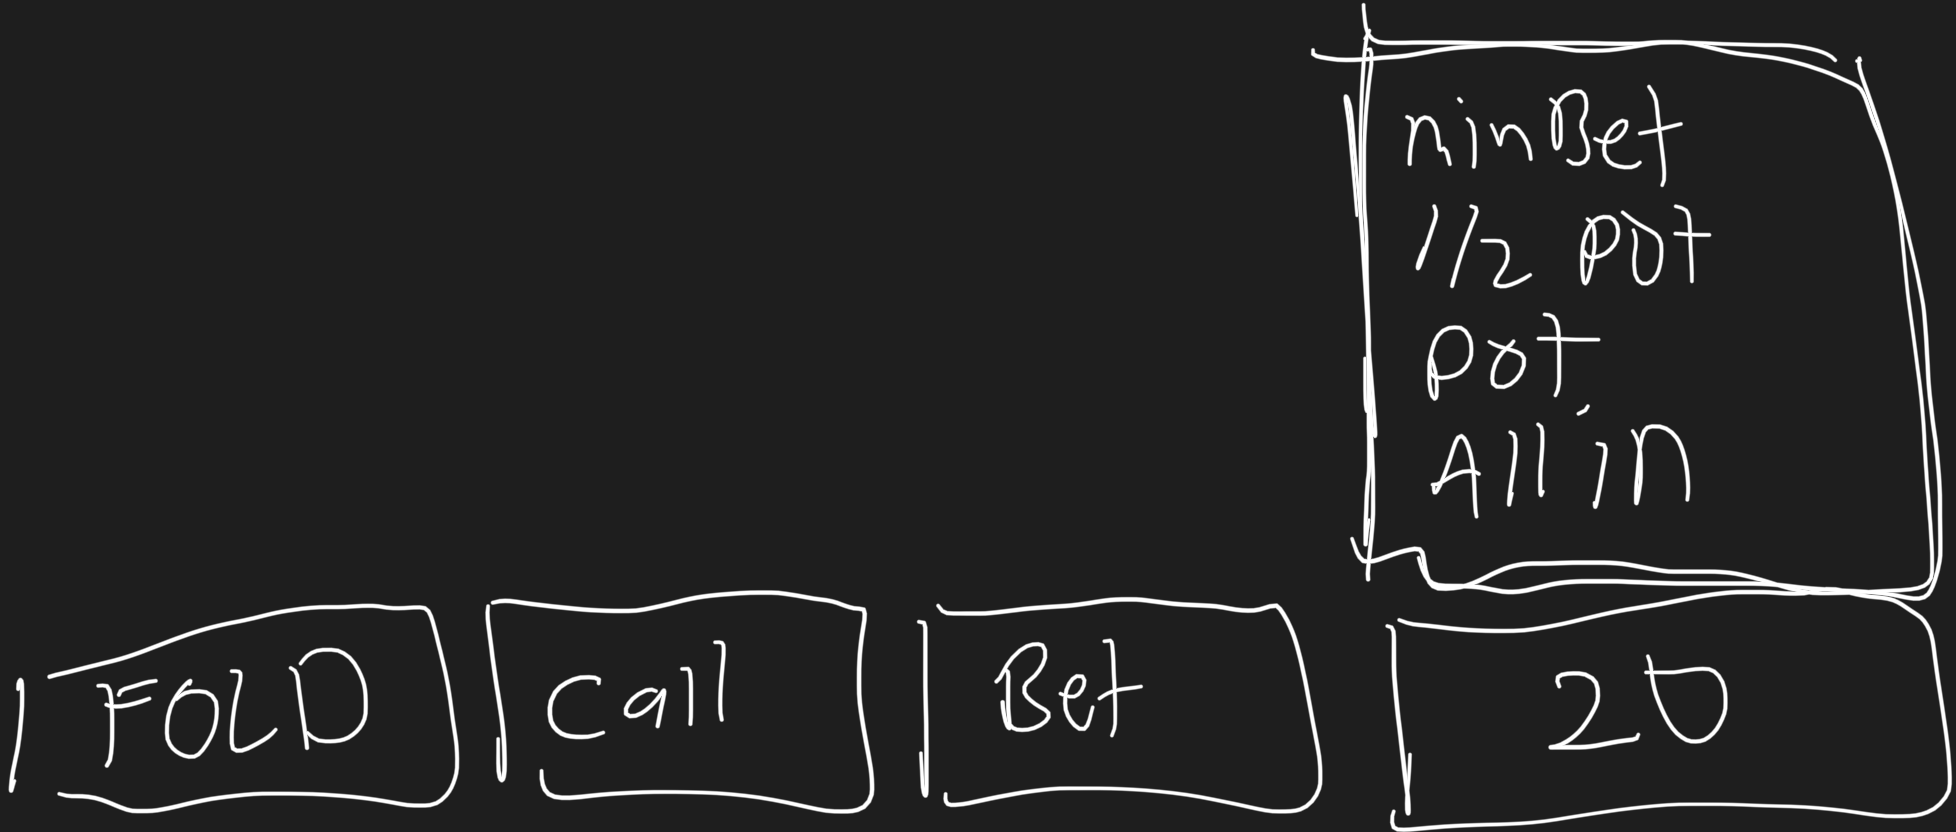 minBet
1/2 POT
POT
All in
FOLD
Call
Bet
20